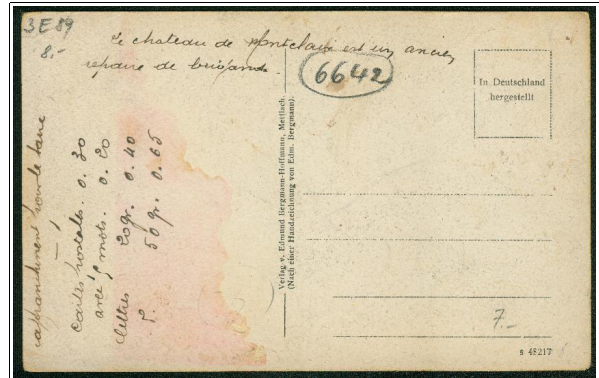 3E89
8.-
Le chateau de Montclair est un ancien
repaire de brigands.
6642
In Deutschland
hergestellt
affranchissement pour la Sarre
Cartes postales. 0.30
avec 5 mots. 0.20
lettres 20gr. 0.40
50gr. 0.65
Verlag v. Edmund Bergmann-Hoffmann, Mettlach.
(Nach einer Handzeichnung von Edm. Bergmann).
7.-
s 48217